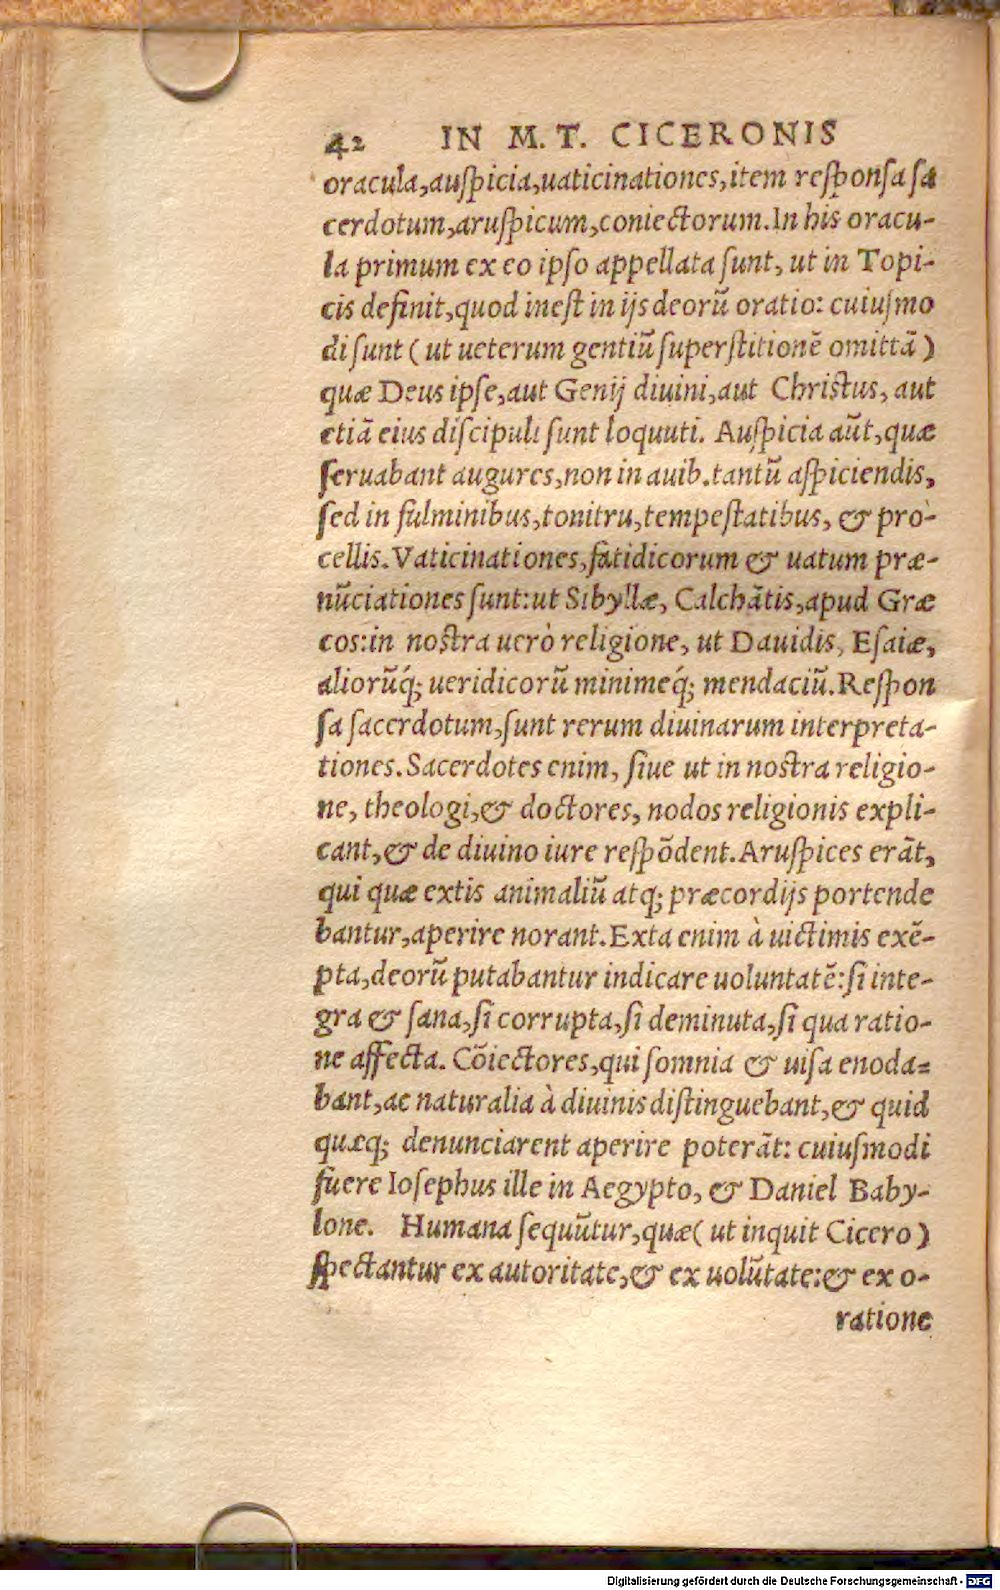 42 IN M. T. CICERONIS
oracula,auſpicia,uaticinationes,item reſponſa ſa
cerdotum,aruſpicum,coniectorum.In his oracu-
la primum ex eo ipſo appellata ſunt, ut in Topi-
cis definit,quod ineſt in ijs deorũ oratio: cuiuſmo
di ſunt ( ut ueterum gentiũ ſuperſtitionẽ omittã )
quæ Deus ipſe,aut Genij diuini,aut Chriſtus, aut
etiã eius diſcipuli ſunt loquuti. Auſpicia aũt,quæ
ſeruabant augures,non in auib.tantũ aſpiciendis,
ſed in fulminibus,tonitru,tempeſtatibus, & pro-
cellis.Vaticinationes,fatidicorum & uatum præ-
nũciationes ſunt:ut Sibyllæ, Calchãtis,apud Græ
cos:in noſtra uerò religione, ut Dauidis, Eſaiæ,
aliorũq́; ueridicorũ minimeq́; mendaciũ.Reſpon
ſa ſacerdotum,ſunt rerum diuinarum interpreta-
tiones.Sacerdotes enim, ſiue ut in noſtra religio-
ne, theologi,& doctores, nodos religionis expli-
cant,& de diuino iure reſpõdent.Aruſpices erãt,
qui quæ extis animaliũ atq; præcordijs portende
bantur,aperire norant.Exta enim à uictimis exẽ-
pta,deorũ putabantur indicare uoluntatẽ:ſi inte-
gra & ſana,ſi corrupta,ſi deminuta,ſi qua ratio-
ne affecta. Cõiectores,qui ſomnia & uiſa enoda-
bant,ac naturalia à diuinis diſtinguebant,& quid
quæq; denunciarent aperire poterãt: cuiuſmodi
fuere Ioſephus ille in Aegypto, & Daniel Baby-
lone. Humana ſequũtur,quæ( ut inquit Cicero )
ſpectantur ex autoritate,& ex uolũtate:& ex o-
ratione
Digitalisierung gefördert durch die Deutsche Forschungsgemeinschaft - DFG